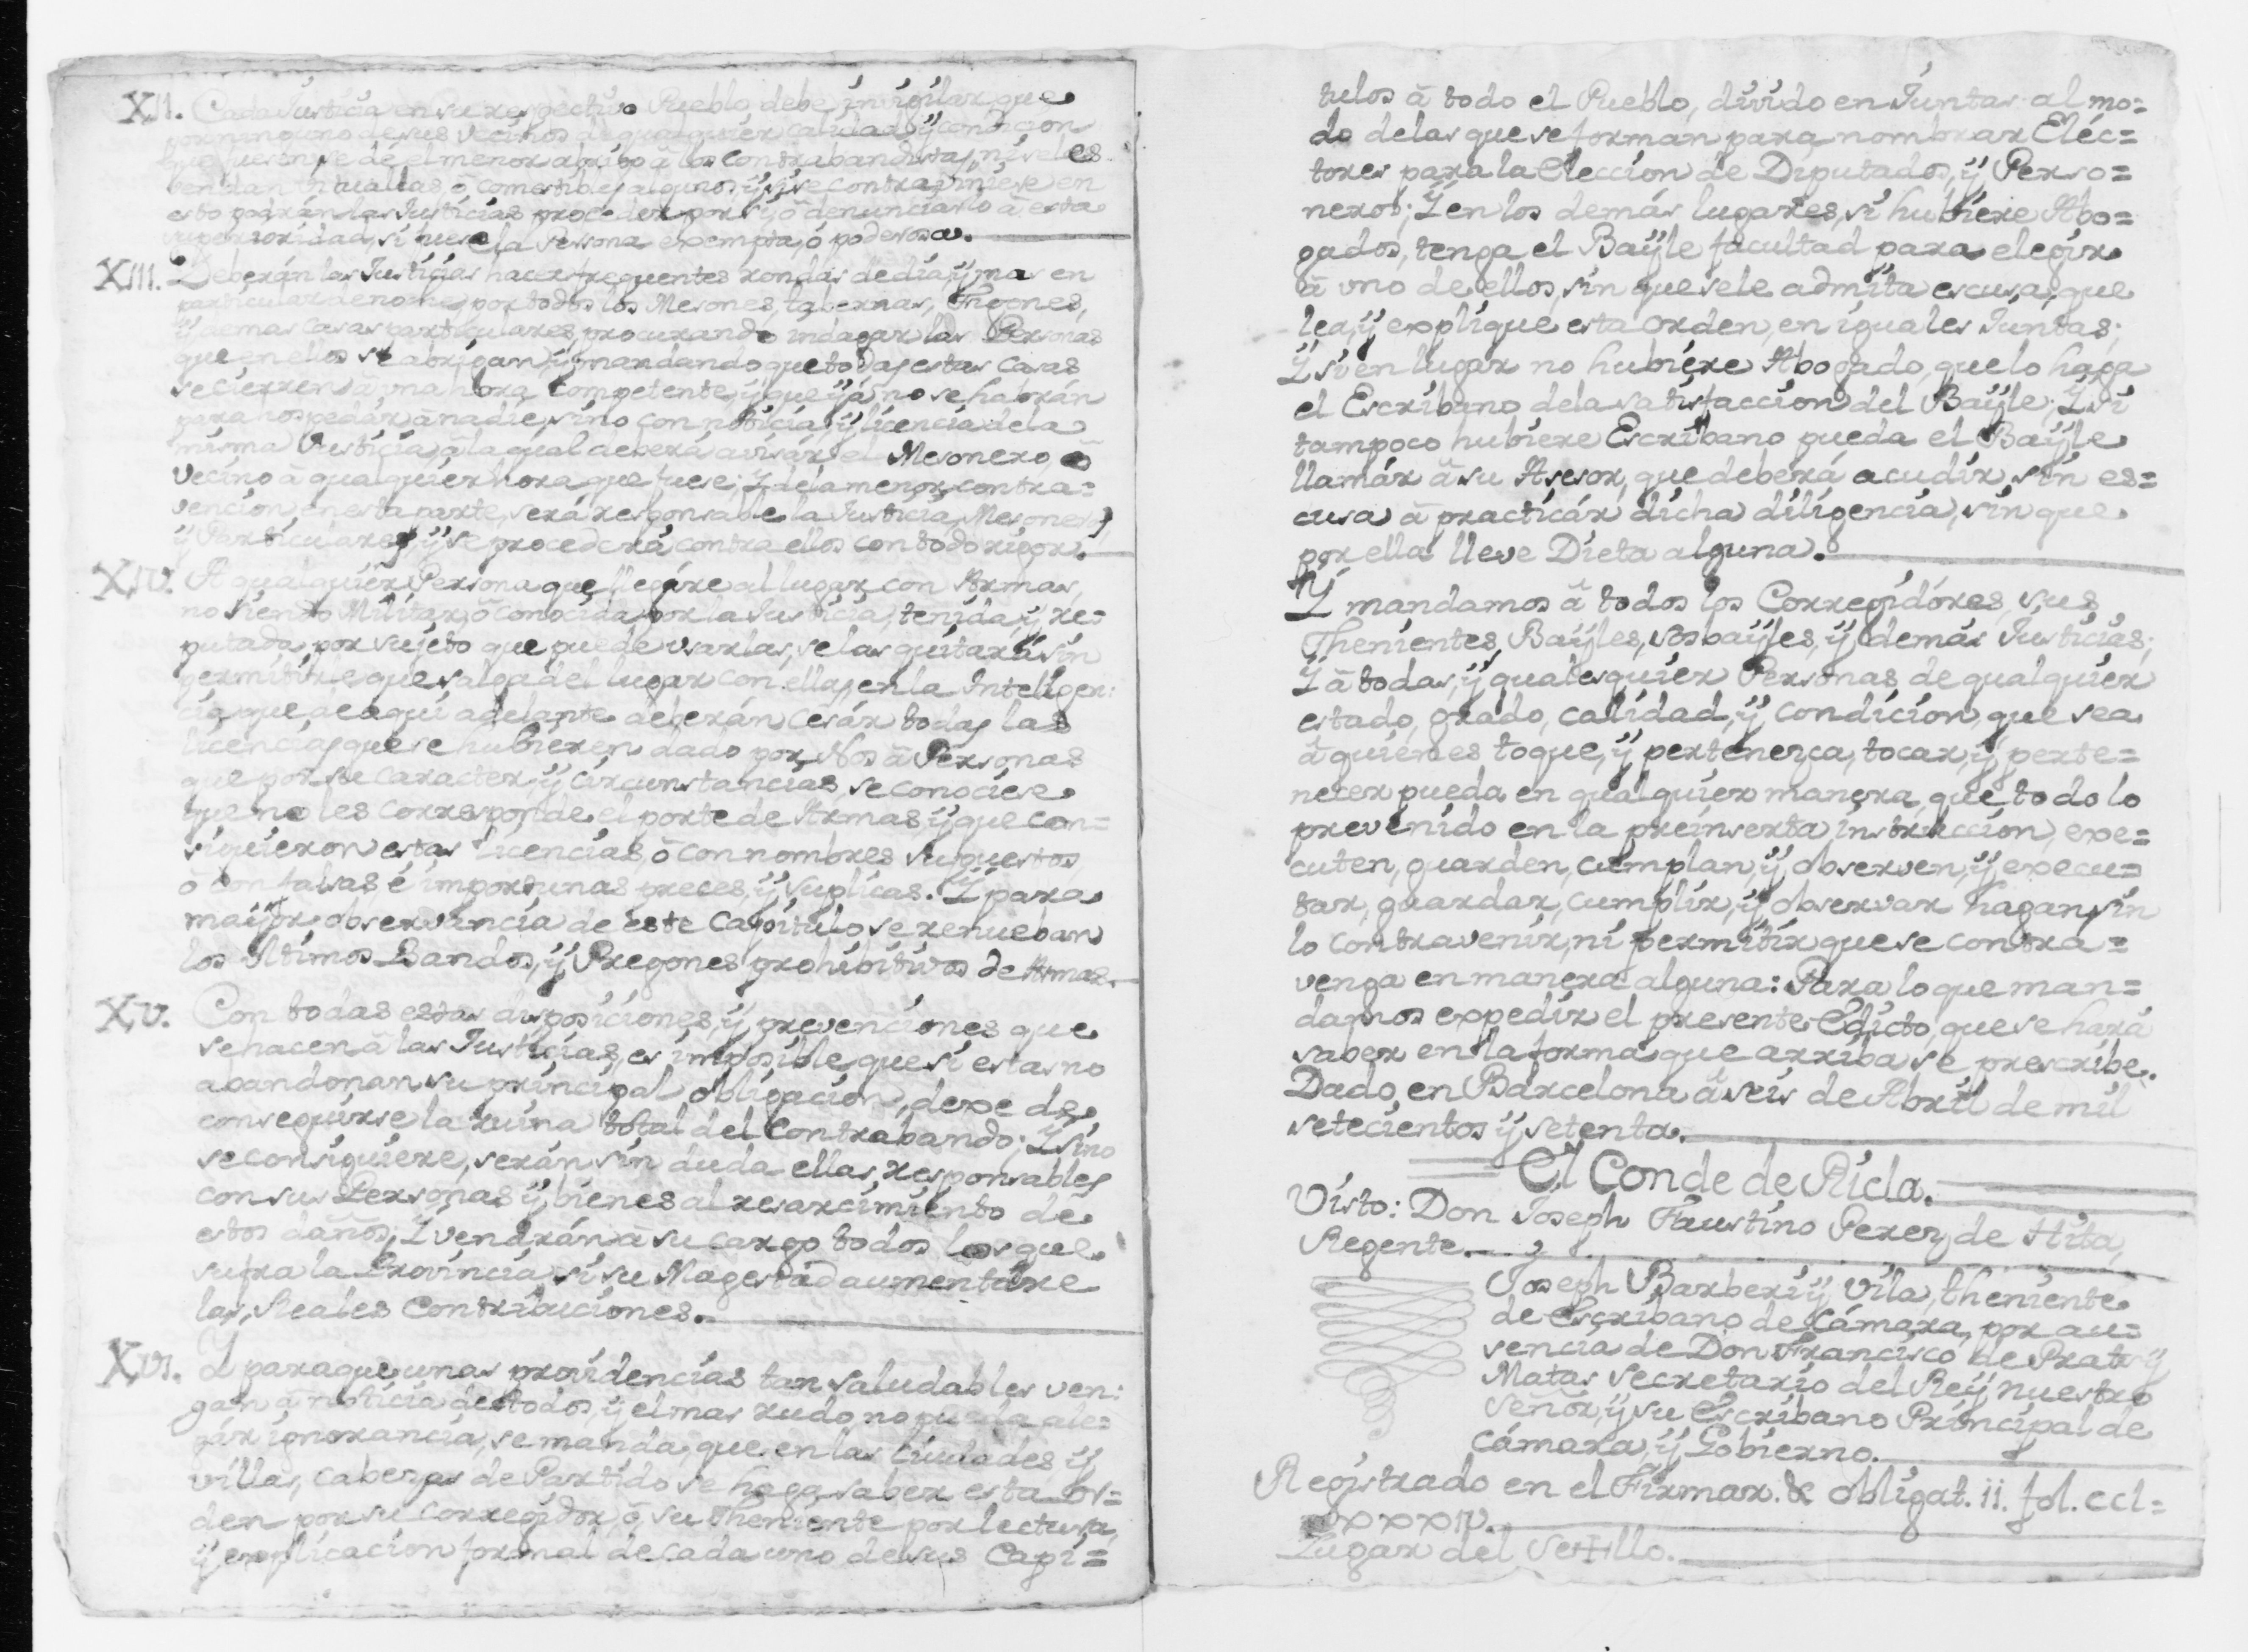 XII. Cada Justicia en su respectivo Pueblo debe invigilar que
por ninguno de sus Vecinos de qualquier calidad, ÿ condicion
que fueren, se dé el menor abrigo â los Contrabandistas, ni se les
vendan vituallas, ô comestibles algunos; ÿ si se contraviniese en
esto podrán las Justicias proceder por sÿ, ô denunciarlo â esta
superioridad, si fuese la Persona exempta, ó poderosa.
XIII. Deberán las Justicias hacer frequentes rondas de dia, ÿ mas en
particular de noche, por todos los Mesones, tabernas, Figones,
ÿ demas casas particulares, procurando indagar las Personas
que en ellos se abrigan, ÿ mandando que todas estas casas
se cierren â una hora competente, ÿ que ÿá no se habrán
para ospedár â nadie, sino con noticia, ÿ licencia de la
misma Justicia, â la qual deberá avisár el Mesonero, ô
vecino â qualquiér hora que fuese; Ÿ de la menor contra=
vencion en esta parte, será responsable la Justicia, Mesoneros,
ÿ Particulares, ÿ se procederá contra ellos con todo rigor.
XIV. A qualquiér Persona que llegáre al lugar con Armas,
no siendo Militar, ô conocida por la Justicia, tenida, ÿ re=
putada, por sujeto que puede usarlas, se las quitará sin
permitirle que salga del lugar con ellas, en la Inteligen:
cia que de aqui adelante deberán cesár todas las
licencias que se hubieren dado por Nos â Personas
que por su caracter, ÿ circunstancias, se conociese
que no les corresponde el porte de Armas ÿ que con=
siguieron estas licencias, ô con nombres supuestos,
ô con falsas é importunas preces, ÿ suplicas. Ÿ para
maÿor observancia de este Capitulo se renueban
los ultimos Bandos, ÿ Pregones prohibitivos de Armas.
XV. Con todas estas disposiciones, ÿ prevenciones que
se hacen â las Justicias, es imposible que si estas no
abandonan su principal obligacion, dexe de
conseguirse la ruina total del Contrabando; Ÿ sino
se consiguiere, serán sin duda ellas, responsables
con sus Personas ÿ bienes al resarcimiento de
estos daños; Ÿ vendrán â su cargo todos los que
sufra la Provincia, si su Magestad aumentáre
las Reales Contribuciones.
XVI. Ÿ para que unas providencias tan saludables ven:
gan â noticia de todos, ÿ el mas rudo, no pueda ale=
gár ignorancia, se manda, que en las Ciudades, ÿ
villas, cabezas de Partido se haga saber esta Or=
den por su Corregidor, ô su Theniente por lectura,
ÿ explicacion formal de cada uno de sus Capi=
tulos â todo el Pueblo, divido en Juntas al mo=
do de las que se forman para nombrar Eléc=
tores para la Eleccion de Diputados, ÿ Perso=
neros; Ÿ en los demás lugares, si hubiere Abo=
gados, tenga el Baÿle facultad para elegir
â uno de ellos, sin que se le admita escusa, que
lea, ÿ explique esta Orden, en iguales Juntas;
Ÿ si en lugar no hubiére Abogado, que lo haga
el Escribano de la satisfaccion del Baÿle; Ÿ si
tampoco hubiere Escribano pueda el Baÿle
llamár â su Asesor, que deberá acudir, sin es=
cusa â practicár dicha diligencia, sin que
por ella lleve Dieta alguna.
Ÿ mandamos â todos los Corregidóres, sus
Thenientes, Baÿles, sosbaÿles, ÿ demás Justicias;
Ÿ â todas, ÿ qualesquiér Personas de qualquiér
estado, grado, calidad, ÿ condicion, que sea
â quiénes toque, ÿ pertenezca, tocar, ÿ perte=
necer pueda en qualquier manera, que todo lo
prevenido en la preinserta instruccion, exe=
cuten, guarden, cumplan, ÿ observen, ÿ execu=
tar, guardar, cumplir, ÿ observar hagan, sin
lo contravenir, ni permitir que se contra=
venga en manera alguna: Para lo que man=
damos expedir el presente Edicto, que se hará
saber en la forma que arriba se prescribe.
Dado en Barcelona â seis de Abril de mil
setecientos ÿ setenta.
El Conde de Ricla.
Visto: Don Joseph Faustino Perez de Hita,
Regente.
Joseph Barberi ÿ Vila, theniente
de Escribano de Cámara, por au=
sencia de Don Francisco de Prats ÿ
Matas Secretario del Reÿ nuestro
Señor, ÿ su Escribano Principal de
Cámara, ÿ Gobierno.
Registrado en el Firmar. & obligat. ii. fol. ccl=
xxxxiv.
Lugar del Se++llo.